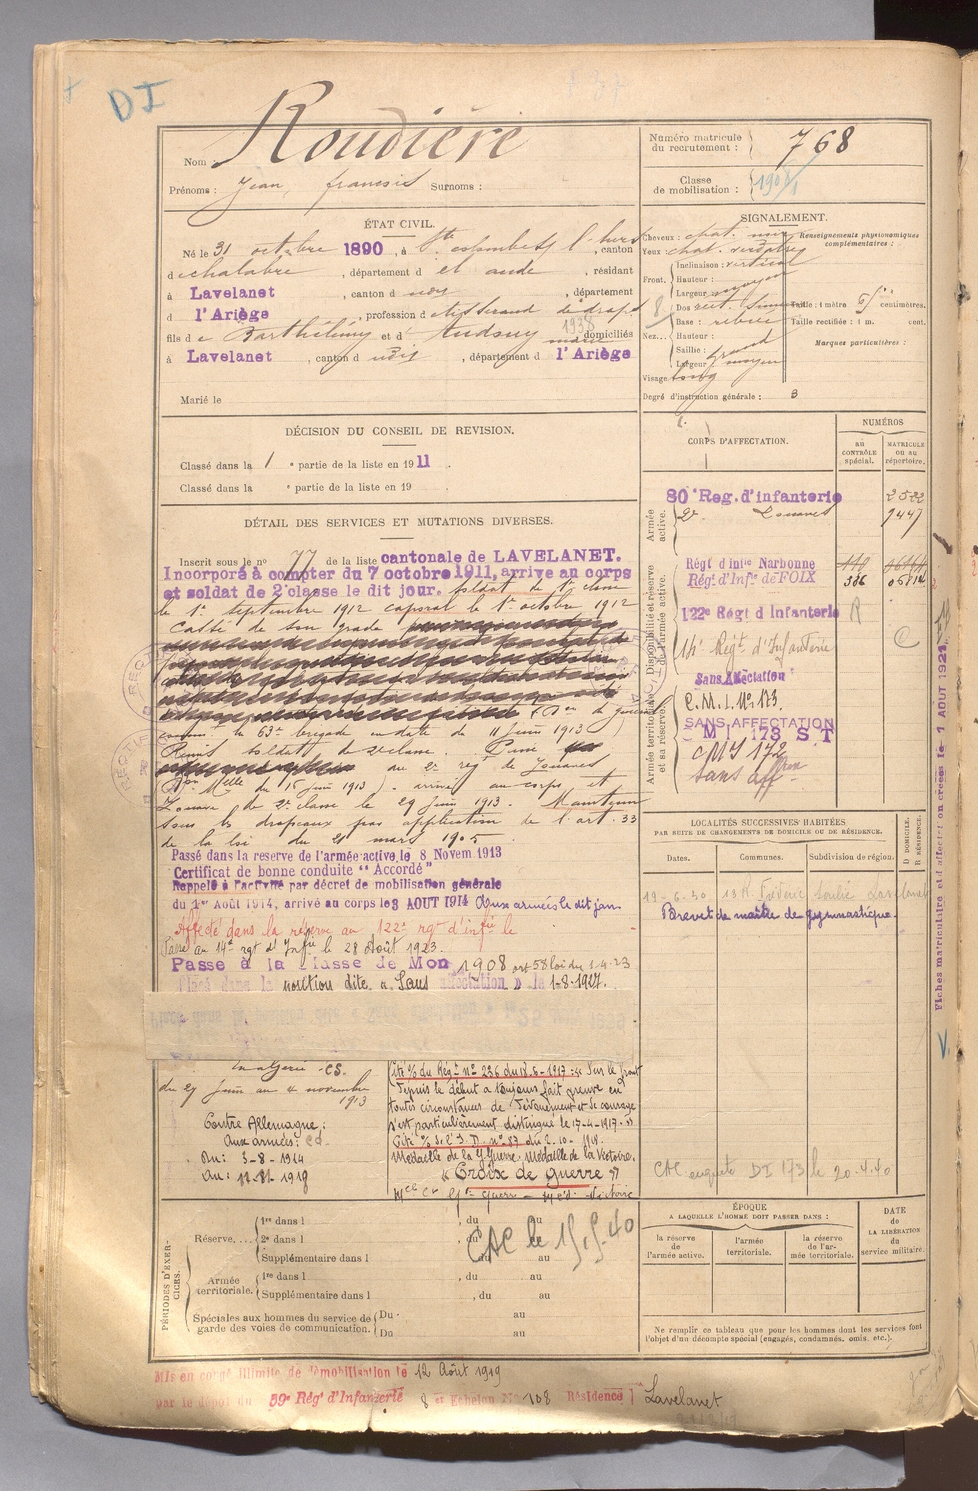 DI
Nom Roudière
Prénoms : Jean, francois Surnoms :
Numéro matricule du recrutement : 768
Classe de mobilisation : 1908
ÉTAT CIVIL.
Né le 31 octobre 1890, à Ste colombe s/ l'hers, canton
d e chalabre, département d el aude, résidant
à Lavelanet, canton d udit, département
d l'Ariège, profession d tisserand de draps
fils d e Barthélemy et d' Audouy domiciliés
à Lavelanet, canton d udit, département d l'Ariège
Marié le
SIGNALEMENT.
Cheveux : chat.
Yeux chat. verdatres
Renseignements physionomiques complémentaires :
Front. Inclinaison : vertical
Hauteur :
Largeur moyen
Nez... Dos rect. sinueux
Base : relevée
Hauteur :
Saillie : grand
Largeur moyen
Visage long
Taille : 1 mètre 65 centimètres.
Taille rectifiée : 1 m. cent.
Marques particulières :
Degré d'instruction générale : 3
DÉCISION DU CONSEIL DE REVISION.
Classé dans la 1e partie de la liste en 1911.
Classé dans la e partie de la liste en 19 .
DÉTAIL DES SERVICES ET MUTATIONS DIVERSES.
Inscrit sous le no 77 de la liste cantonale de LAVELANET.
Incorporé à compter du 7 octobre 1911, arrive au corps
et soldat de 2e classe le dit jour. Soldat de 1e classe
le 1er septembre 1912 caporal le 1er octobre 1912
Cassé de son grade
la 63e brigade en date du 11 juin 1913)
Remis soldat de 2e classe. Passé
au 2e regt de Zouaves
du 15 juin 1913) arrivé au corps et
Zouave de 2e classe le 29 juin 1913. Maintenu
sous les drapeaux par application de l'art. 33
de la loi du 21 mars 1905
Passé dans la reserve de l'armée active le 8 Novem. 1913
Certificat de bonne conduite "Accordé"
Rappelé à l'activité par décret de mobilisation générale
du 1er Août 1914, arrivé au corps le 3 AOUT 1914 Aux armées le dit jour
Affecté dans la réserve au 122e rgt d'infie le
Passé au 14e rgt d'Infie le 28 Août 1923.
Passe à la Classe de Mon 1908 art 58 loi du 1.4.23
Placé dans la position dite « Sans affectation » le 1-8-1927.
En algérie CS.
du 29 juin au 4 novembre
1913
Contre Allemagne :
Aux armées : CD
Du : 3-8-1914
Au :
Cité % du Régt no 236 du 12-5-1917 : « Sur le front
depuis le début a toujours fait preuve en
toutes circonstances de dévouement et de courage
s'est particulièrement distingué le 17-4-1917. »
Cité % de l'I. D. no 87 du 2-10-1918.
Médaille de la Gde Guerre. Médaille de la Victoire.
« Croix de guerre »
CORPS D'AFFECTATION.
NUMÉROS
AU CONTRÔLE spécial.
MATRICULE ou au répertoire.
Armée active.
80e Reg. d'infanterie 2522
2e Zouaves 9447
Disponibilité et réserve de l'armée active.
Régt d'infie Narbonne
Régt d'Infie de FOIX 336 05814
122e Régt d Infanterie R
14e Régt d'Infanterie C
Armée territoriale et sa réserve.
Sans Affectation
C. M. I. No 173.
SANS AFFECTATION
M I 173 S T
CMI 172
sans affon
LOCALITÉS SUCCESSIVES HABITÉES
PAR SUITE DE CHANGEMENTS DE DOMICILE OU DE RÉSIDENCE.
Dates. Communes. Subdivision de région. D DOMICILE. R RÉSIDENCE.
19-6-30 13 R. Frédéric Soulié Lavelanet
Brevet de maître de gymnastique.
CAC enquête DI 173 le 20-4-40
PÉRIODES D'EXERCICES.
Réserve.... 1re dans l , du au
2e dans l , du au
Supplémentaire dans l au
CAC le 15.5.40
Armée territoriale. 1re dans l , du au
Supplémentaire dans l , du au
Spéciales aux hommes du service de garde des voies de communication. Du au
Du au
ÉPOQUE
A LAQUELLE L'HOMME DOIT PASSER DANS :
la réserve de l'armée active.
l'armée territoriale.
la réserve de l'armée territoriale.
DATE de LA LIBÉRATION du service militaire.
Ne remplir ce tableau que pour les hommes dont les services font
l'objet d'un décompte spécial (engagés, condamnés, omis, etc.).
Mis en congé illimité de démobilisation le 12 Août 1919
par le dépôt du 59e Régt d'Infanterie 8 et Echelon No 108 Résidence Lavelanet
Fiches matriculaire et d'affectation créées le 1 AOUT 1921